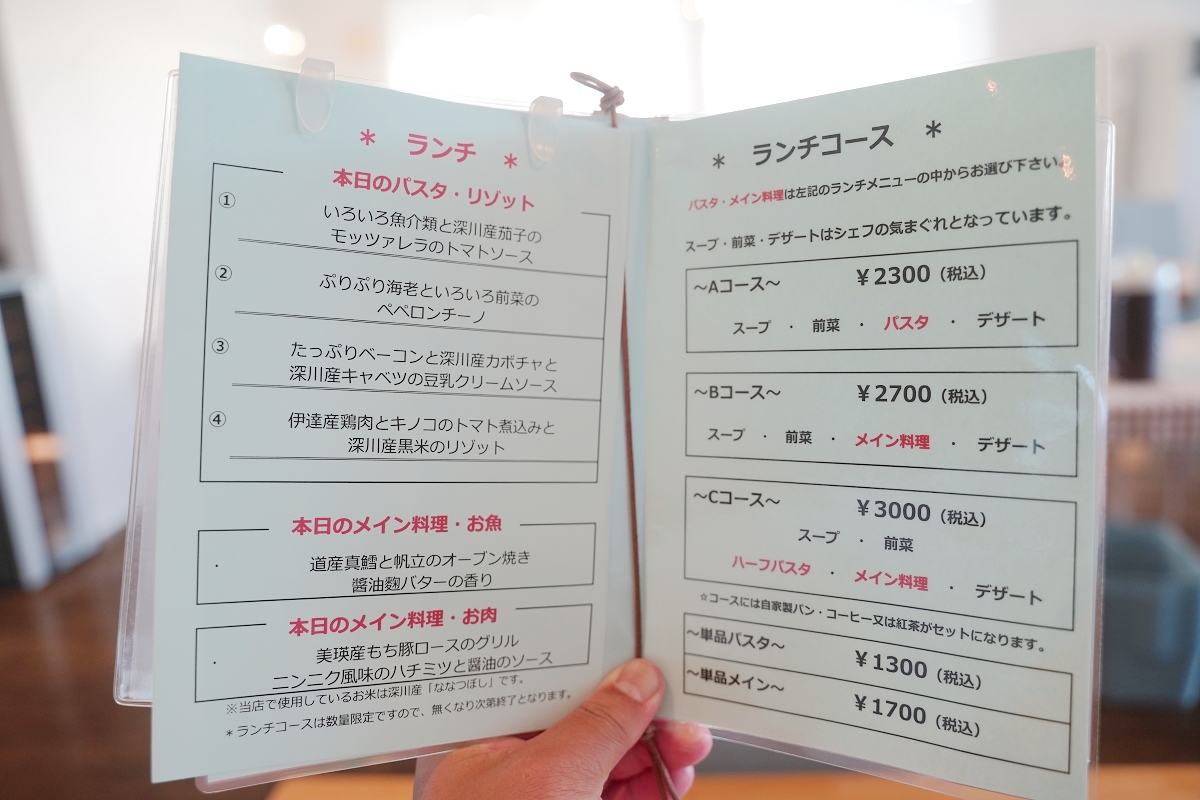 ＊ ランチ ＊
本日のパスタ・リゾット
①
いろいろ魚介類と深川産茄子の
モッツァレラのトマトソース
②
ぷりぷり海老といろいろ前菜の
ペペロンチーノ
③
たっぷりベーコンと深川産カボチャと
深川産キャベツの豆乳クリームソース
④
伊達産鶏肉とキノコのトマト煮込みと
深川産黒米のリゾット
本日のメイン料理・お魚
・ 道産真鱈と帆立のオーブン焼き
醬油麴バターの香り
本日のメイン料理・お肉
・ 美瑛産もち豚ロースのグリル
ニンニク風味のハチミツと醤油のソース
※当店で使用しているお米は深川産「ななつぼし」です。
＊ランチコースは数量限定ですので、無くなり次第終了となります。
＊ ランチコース ＊
パスタ・メイン料理は左記のランチメニューの中からお選び下さい。
スープ・前菜・デザートはシェフの気まぐれとなっています。
～Aコース～ ￥2300（税込）
スープ ・ 前菜 ・ パスタ ・ デザート
～Bコース～ ￥2700（税込）
スープ ・ 前菜 ・ メイン料理 ・ デザート
～Cコース～ ￥3000（税込）
スープ ・ 前菜
ハーフパスタ ・ メイン料理 ・ デザート
☆コースには自家製パン・コーヒー又は紅茶がセットになります。
～単品パスタ～ ￥1300（税込）
～単品メイン～ ￥1700（税込）